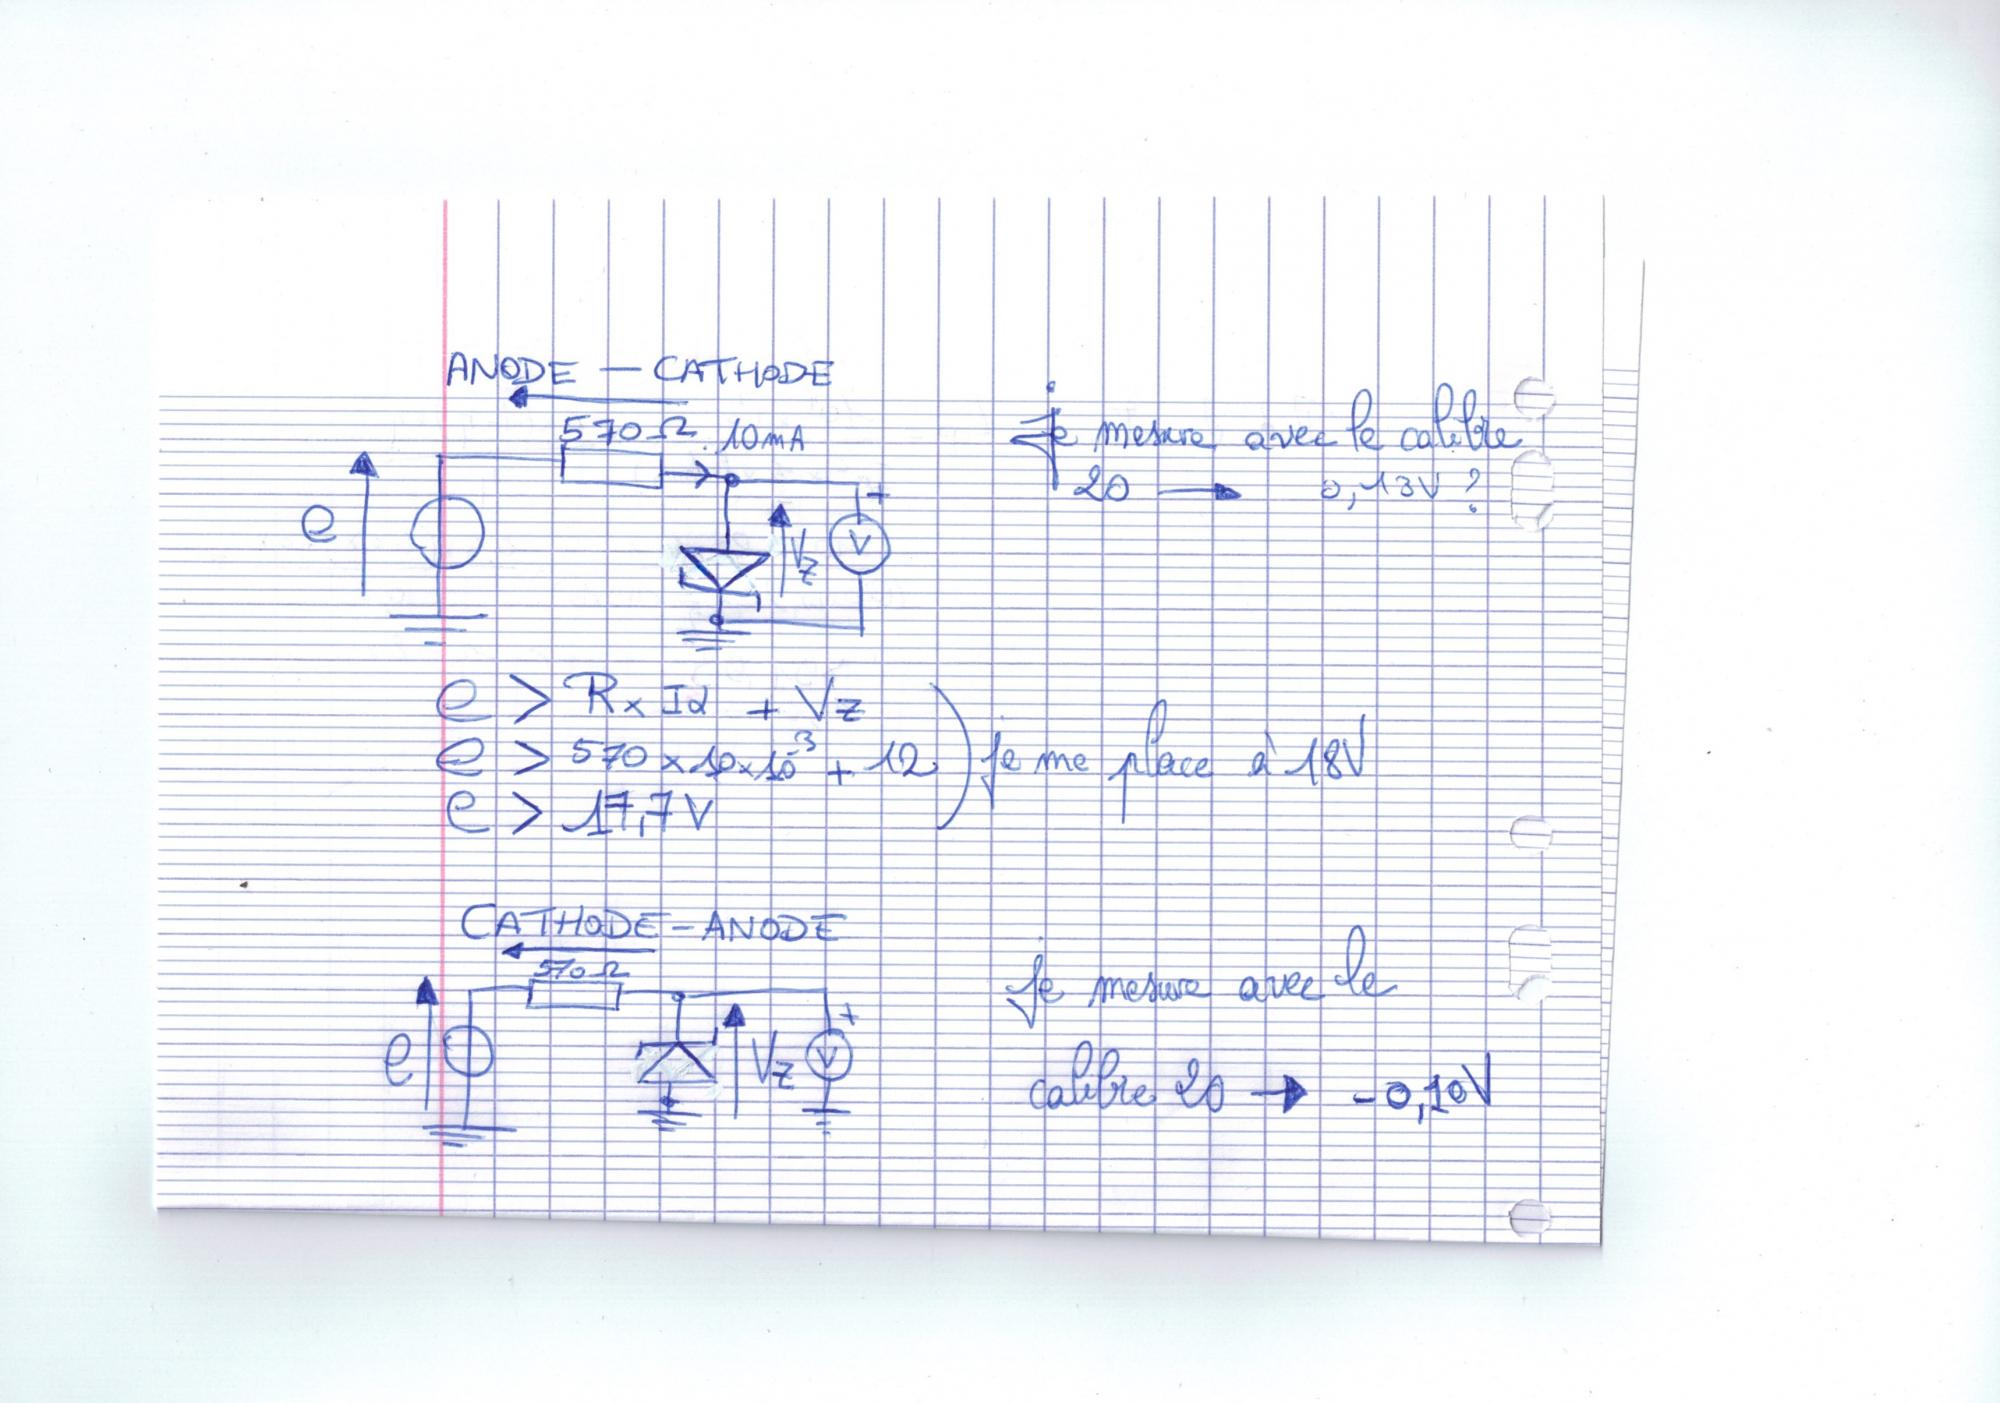 ANODE — CATHODE
570Ω 10mA
e
+
Vz
V
Je mesure avec le calibre
20 → 0,13V ?
e > R x Id + Vz
e > 570 x 10 x 10⁻³ + 12
e > 17,7 V
je me place à 18V
CATHODE – ANODE
570Ω
e
+
Vz
V
Je mesure avec le
calibre 20 → -0,10V